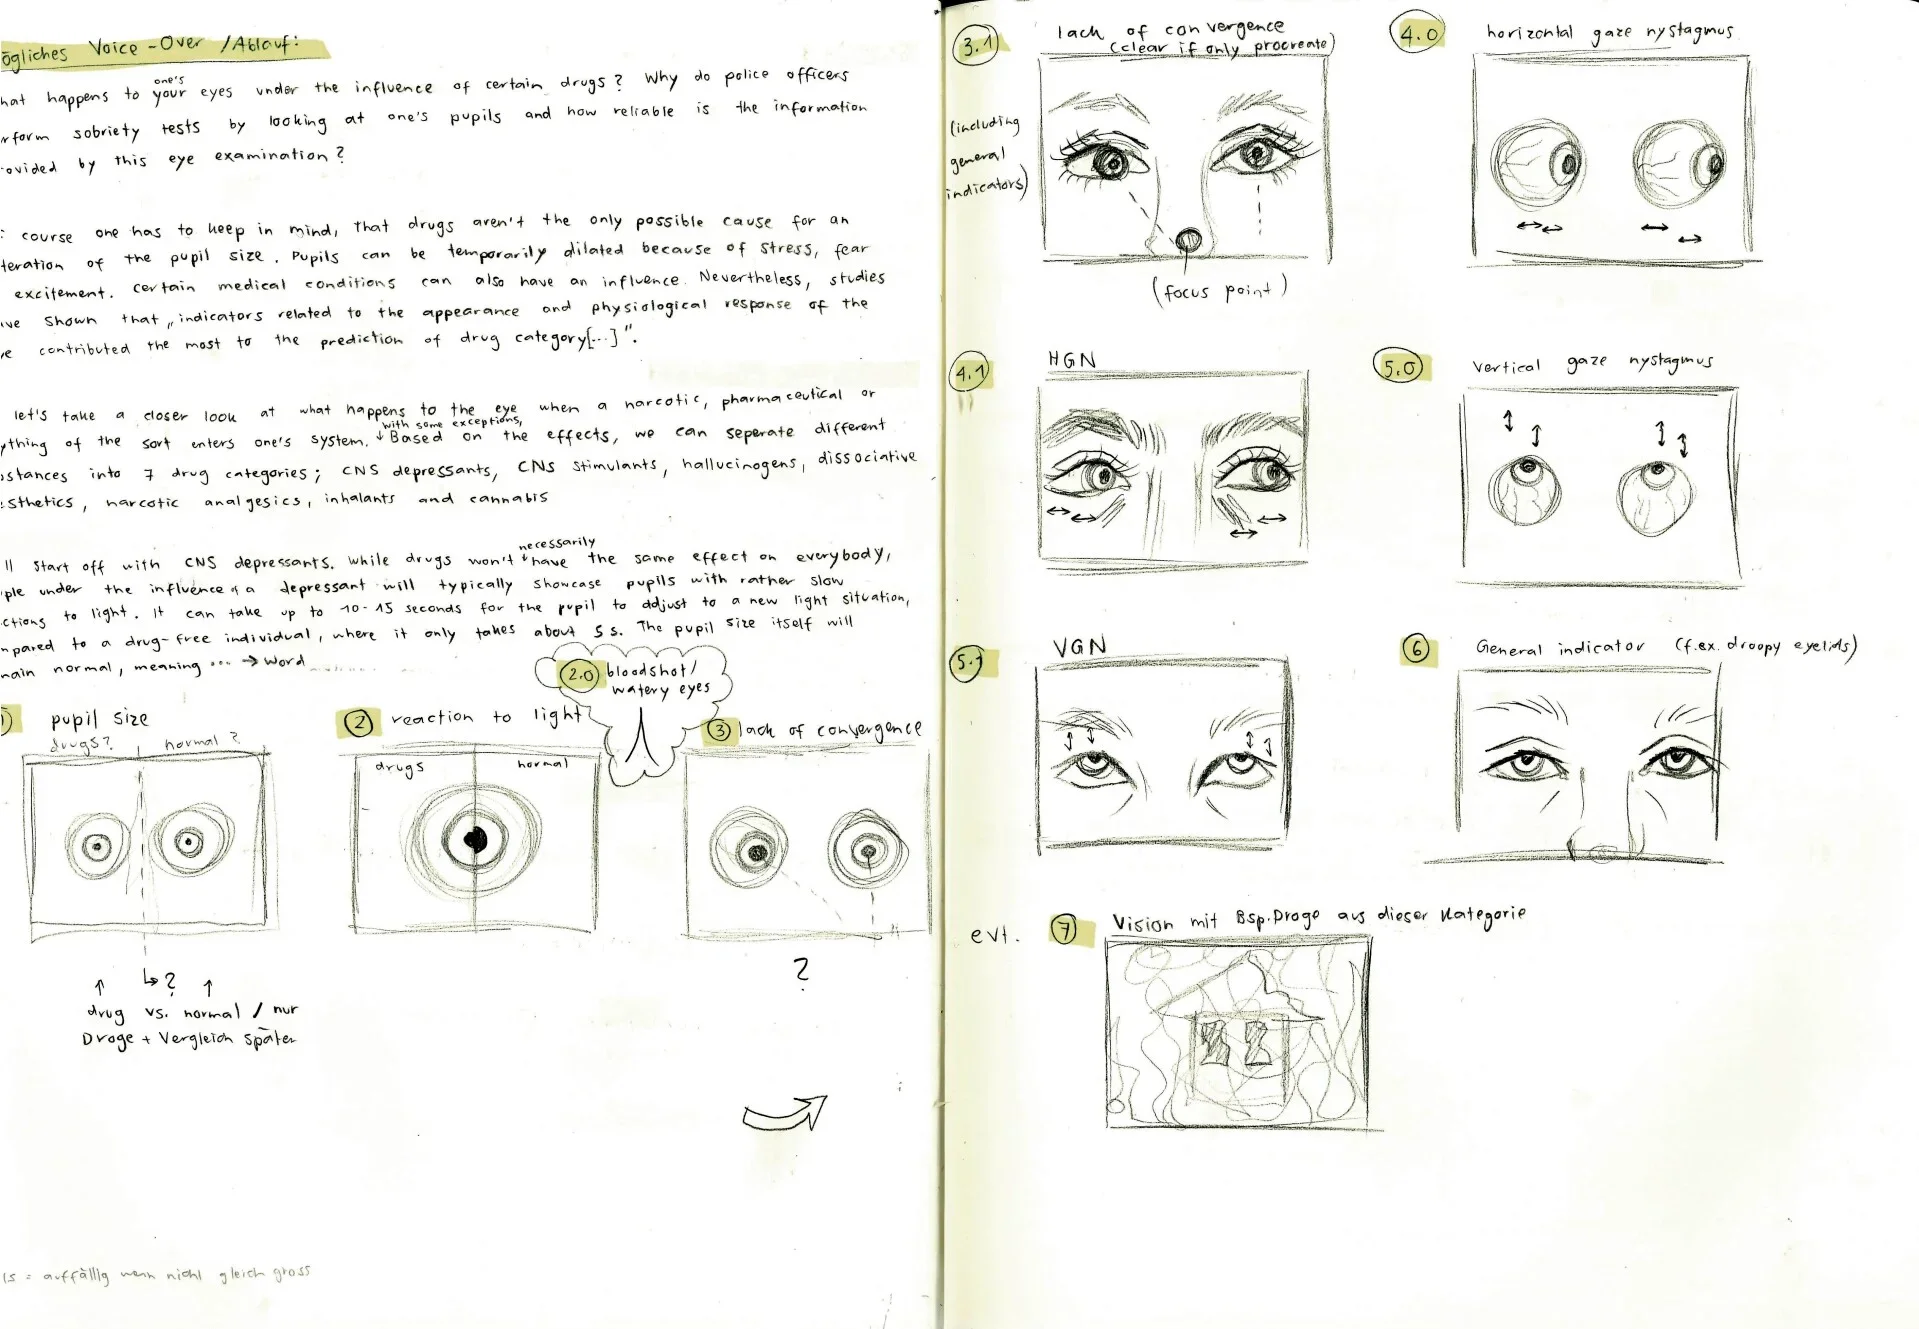 ögliches Voice-Over /Ablauf:
one's
hat happens to your eyes under the influence of certain drugs? Why do police officers
rform sobriety tests by looking at one's pupils and how reliable is the information
ovided by this eye examination?
course one has to keep in mind, that drugs aren't the only possible cause for an
teration of the pupil size. Pupils can be temporarily dilated because of stress, fear
excitement. Certain medical conditions can also have an influence. Nevertheless, studies
ve shown that „indicators related to the appearance and physiological response of the
e contributed the most to the prediction of drug category[...]".
let's take a closer look at what happens to the eye when a narcotic, pharmaceutical or
with some exceptions,
ything of the sort enters one's system. ↓ Based on the effects, we can seperate different
bstances into 7 drug categories; CNS depressants, CNS stimulants, hallucinogens, dissociative
esthetics, narcotic analgesics, inhalants and cannabis
necessarily
ll start off with CNS depressants. While drugs won't ↓ have the same effect on everybody,
ple under the influence of a depressant will typically showcase pupils with rather slow
ctions to light. It can take up to 10-15 seconds for the pupil to adjust to a new light situation,
mpared to a drug-free individual, where it only takes about 5 s. The pupil size itself will
main normal, meaning ... → Word
2.0 bloodshot/
watery eyes
pupil size
drugs? normal?
2 reaction to light
drugs normal
3 lack of convergence
?
↳ ?
drug vs. normal / nur
Droge + Vergleich später
ls = auffällig wenn nicht gleich gross
3.1 lack of convergence
(clear if only procreate)
(including
general
indicators)
(focus point)
4.0 horizontal gaze nystagmus
4.1 HGN
5.0 vertical gaze nystagmus
5.1 VGN
6 General indicator (f.ex. droopy eyelids)
evt. 7 Vision mit Bsp.Droge aus dieser Kategorie